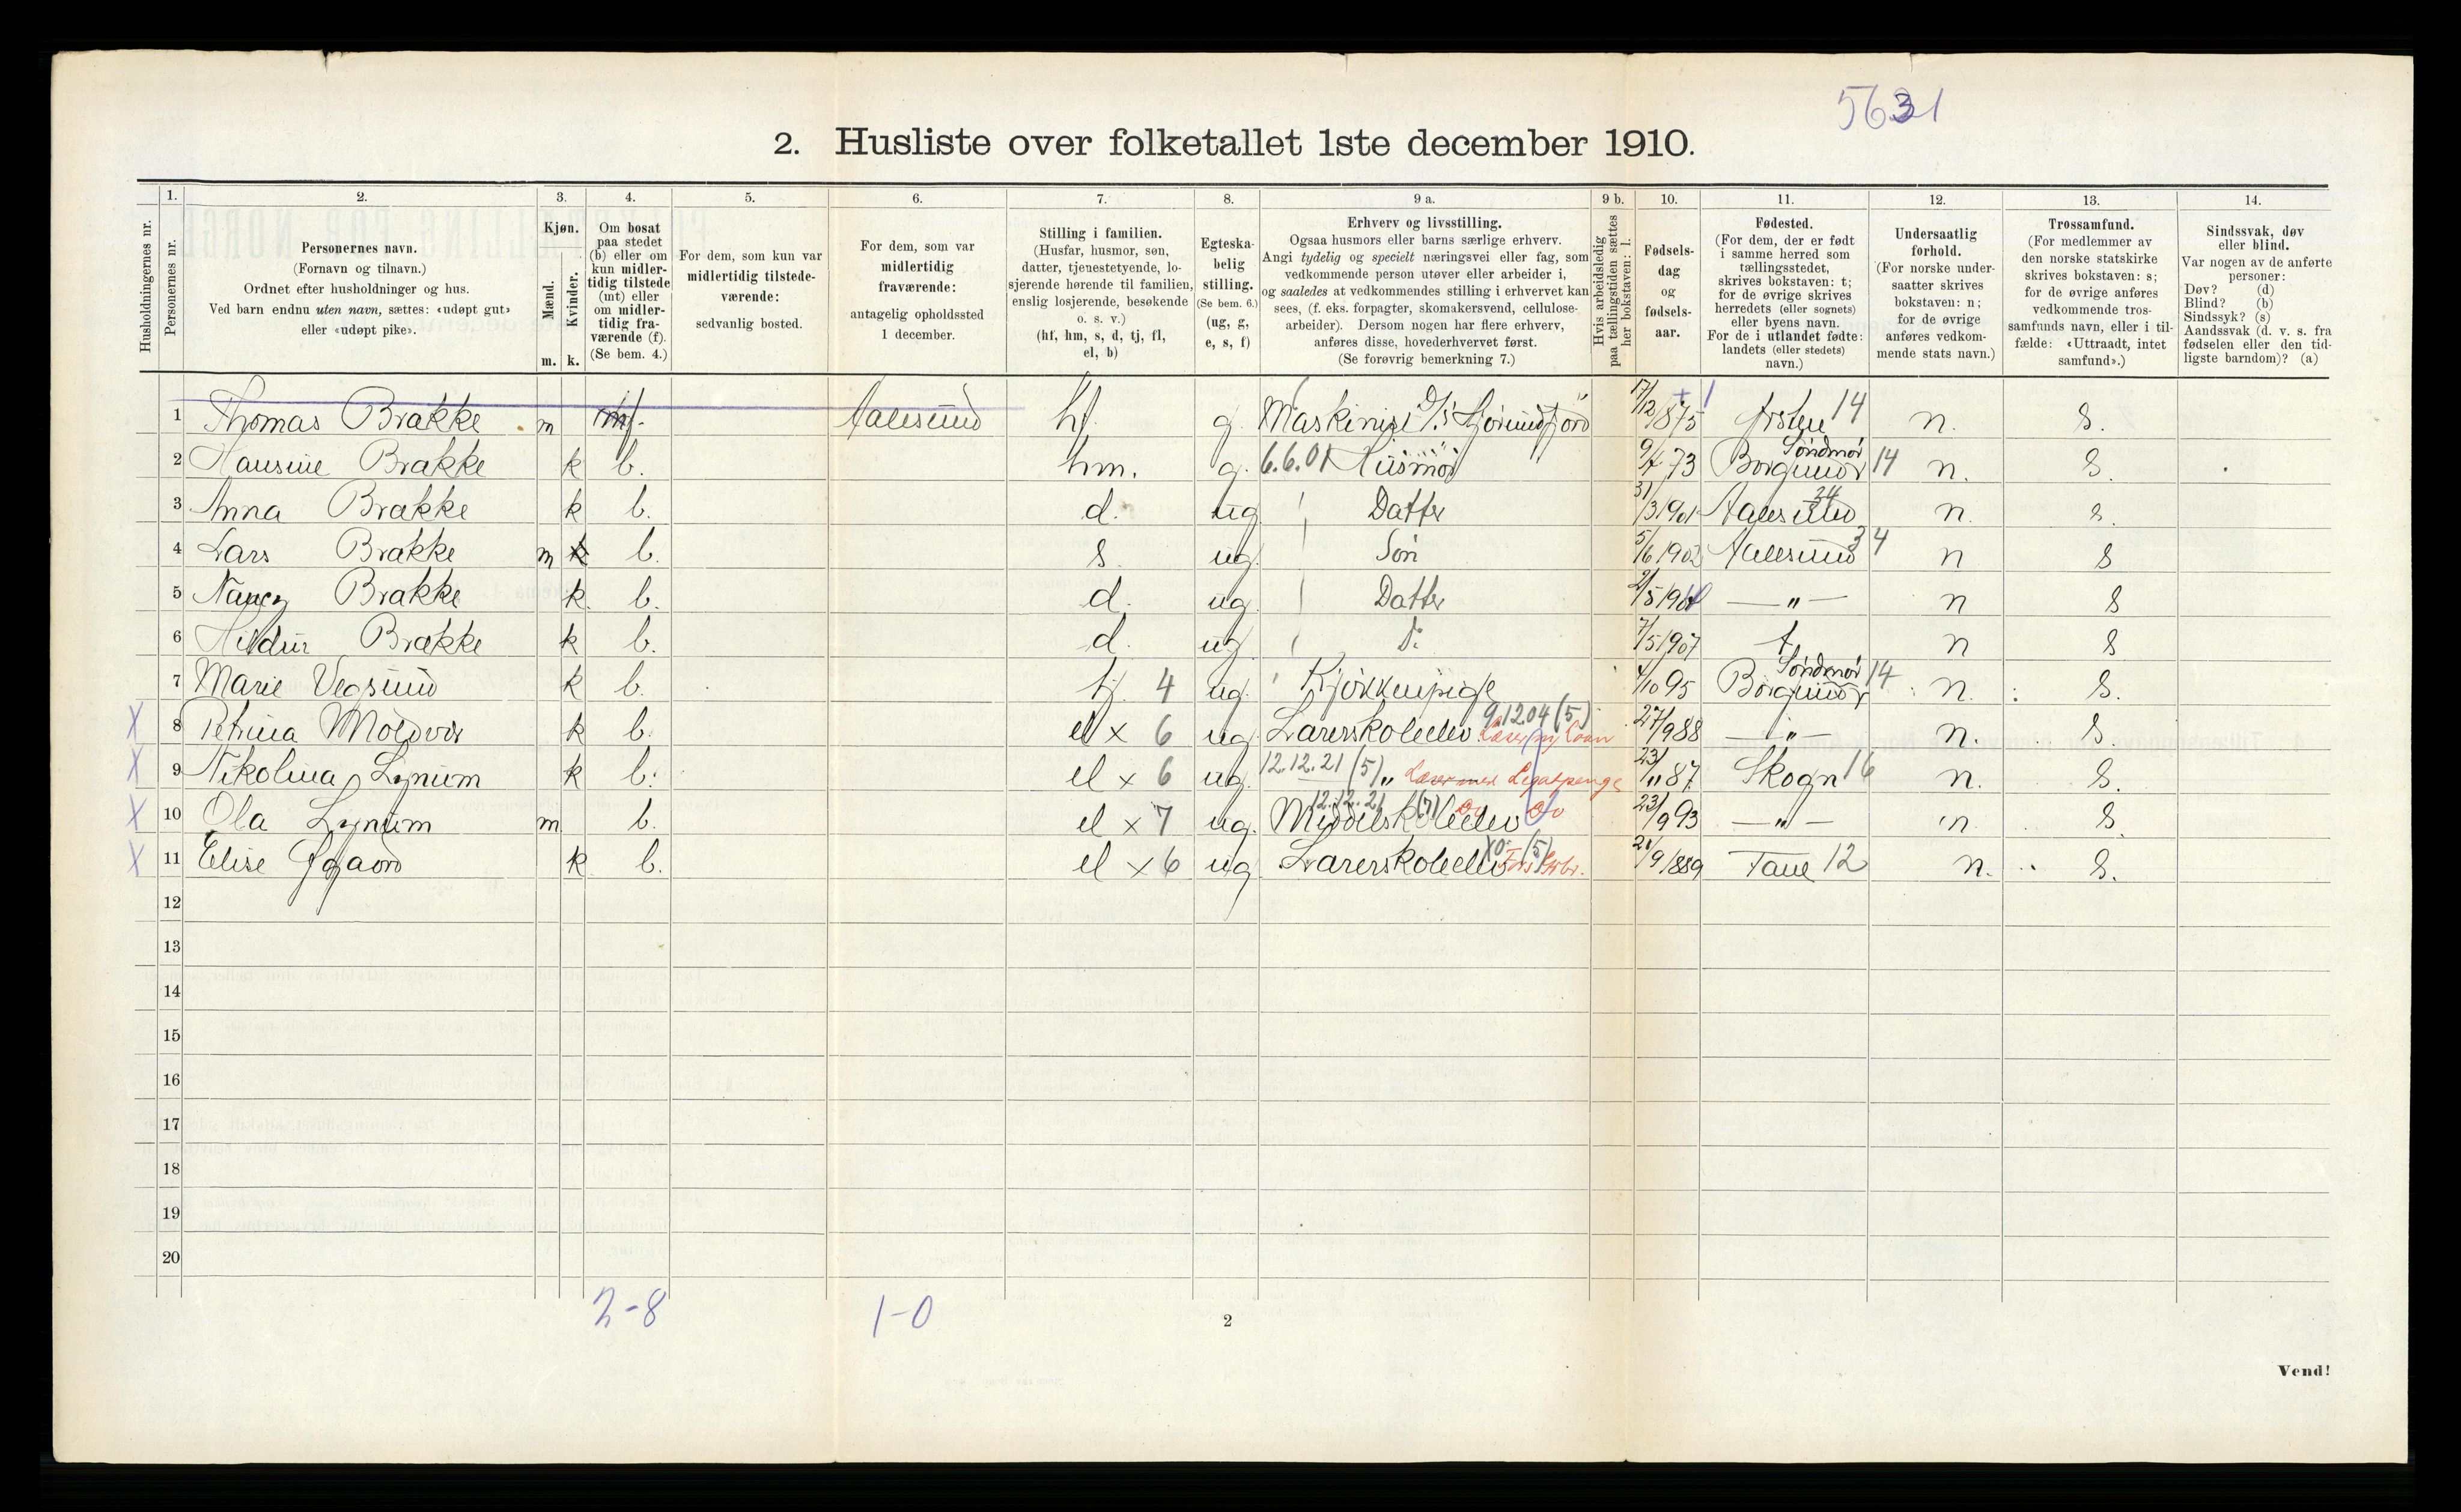 5631
2. Husliste over folketallet 1ste december 1910.
Husholdningernes nr.
1.
Personernes nr.
2.
Personernes navn.
(Fornavn og tilnavn.)
Ordnet efter husholdninger og hus.
Ved barn endnu uten navn, sættes: «udøpt gut»
eller «udøpt pike».
3.
Kjøn.
Mænd.
Kvinder.
m. k.
4.
Om bosat
paa stedet
(b) eller om
kun midler-
tidig tilstede
(mt) eller
om midler-
tidig fra-
værende (f).
(Se bem. 4.)
5.
For dem, som kun var
midlertidig tilstede-
værende:
sedvanlig bosted.
6.
For dem, som var
midlertidig
fraværende:
antagelig opholdssted
1 december.
7.
Stilling i familien.
(Husfar, husmor, søn,
datter, tjenestetyende, lo-
sjerende hørende til familien,
enslig losjerende, besøkende
o. s. v.)
(hf, hm, s, d, tj, fl,
el, b)
8.
Egteska-
belig
stilling.
(Se bem. 6.)
(ug, g,
e, s, f)
9 a.
Erhverv og livsstilling.
Ogsaa husmors eller barns særlige erhverv.
Angi tydelig og specielt næringsvei eller fag, som
vedkommende person utøver eller arbeider i,
og saaledes at vedkommendes stilling i erhvervet kan
sees, (f. eks. forpagter, skomakersvend, cellulose-
arbeider). Dersom nogen har flere erhverv,
anføres disse, hovederhvervet først.
(Se forøvrig bemerkning 7.)
9 b.
Hvis arbeidsledig
paa tællingstiden sættes
her bokstaven: l.
10.
Fødsels-
dag
og
fødsels-
aar.
11.
Fødested.
(For dem, der er født
i samme herred som
tællingsstedet,
skrives bokstaven: t;
for de øvrige skrives
herredets (eller sognets)
eller byens navn.
For de i utlandet fødte:
landets (eller stedets)
navn.)
12.
Undersaatlig
forhold.
(For norske under-
saatter skrives
bokstaven: n;
for de øvrige
anføres vedkom-
mende stats navn.)
13.
Trossamfund.
(For medlemmer av
den norske statskirke
skrives bokstaven: s;
for de øvrige anføres
vedkommende tros-
samfunds navn, eller i til-
fælde: «Uttraadt, intet
samfund».)
14.
Sindssvak, døv
eller blind.
Var nogen av de anførte
personer:
Døv? (d)
Blind? (b)
Sindssyk? (s)
Aandssvak (d. v. s. fra
fødselen eller den tid-
ligste barndom)? (a)
1 Thomas Brække m Aalesund hf. g. Maskinist Hjørundfjord 17/12 1875 Ørsten 14 n. s.
2 Hansine Brække k b. hm. g. 6.6.01 Husmor 9/7 73 Borgund Søndmør 14 n. s.
3 Anna Brække k b. d. ug Datter 31/3 1901 Aalesund 34 n. s.
4 Lars Brække m k b. s. ug. Søn 5/6 1902 Aalesund 34 n s
5 Nancy Brække k. b. d. ug. Datter 2/5 190 — " — n s
6 Hildur Brække k b. d. ug. D: 7/5 1907 t n s
7 Marie Vegsund k b. tj. 4 ug. Kjøkkenpige /10 95 Borgund Søndmør 14 n. s.
X 8 Petrina Moldvær k b. el x 6 ug. Lærerskoleelev 9.12.04 (5) 27/9 88 — " — n. s.
X 9 Nikolina Lynum k b. el x 6 ug. 12.12.21 (5) " Legatpenge 23/11 87 Skogn 16 n. s.
X 10 Ola Lynum m b. el x 7 ug. Middelskoleelev 12.12.21 (7) Do 23/9 93 — " — n s.
X 11 Elise k b. el x 6 ug Lærerskoleelev (5) 21/9 1889 Fane 12 n. s.
12
13
14
15
16
17
18
19
20
2-8
1-0
2
Vend!